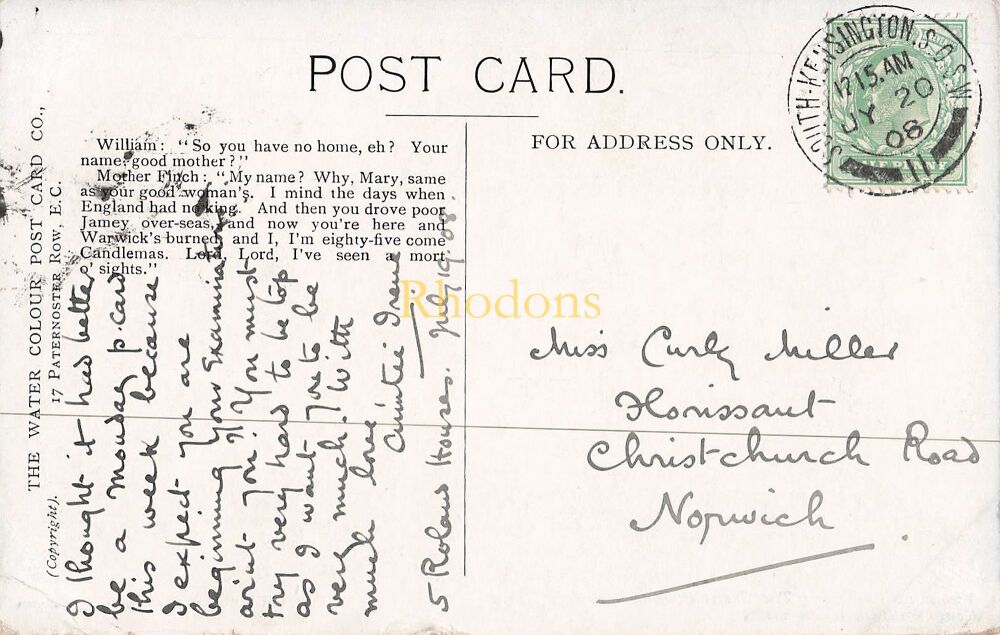 POST CARD.
FOR ADDRESS ONLY.
SOUTH-KENSINGTON.S.O.S.W
12 15.AM
JY 20
08
11
THE WATER COLOUR POST CARD CO.,
17 PATERNOSTER ROW, E.C.
(Copyright).
William: "So you have no home, eh? Your
name, good mother?"
Mother Finch: "My name? Why, Mary, same
as your good woman's. I mind the days when
England had no king. And then you drove poor
Jamey over-seas, and now you're here and
Warwick's burned, and I, I'm eighty-five come
Candlemas. Lord, Lord, I've seen a mort
o' sights."
I thought it had better
be a monday p. card
this week because
I expect you are
beginning your Examination
arint you? You must
try very hard to be top
as I want you to be
very much. With
much love
Auntie Irene
5 Roland Houses. July 19 08.
Rhodons
Miss Curly Miller
Christchurch Road
Norwich